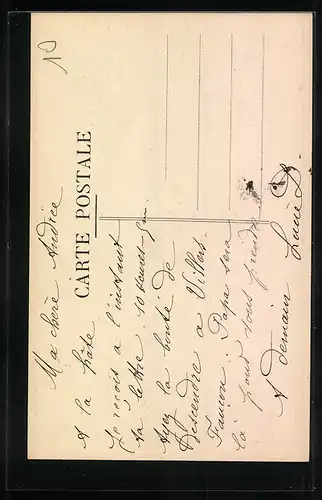 CARTE POSTALE
Ma chère Andrée
A la hâte
Je reçois à l'instant
ta lettre. 10 heures
Ayez la bonté de
Descendre a Villers
Papa sera
là pour vous prendre
A demain Lucie D.